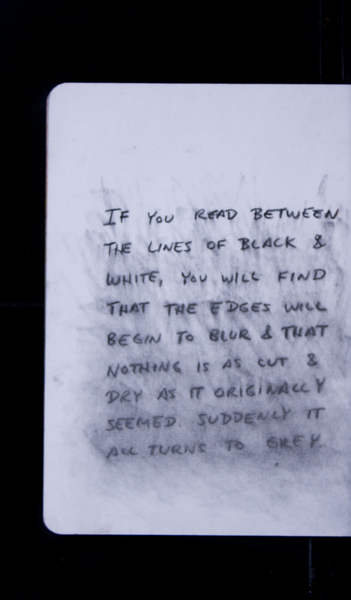 IF YOU READ BETWEEN
THE LINES OF BLACK &
WHITE, YOU WILL FIND
THAT THE EDGES WILL
BEGIN TO BLUR & THAT
NOTHING IS AS CUT &
DRY AS IT ORIGINALLY
SEEMED. SUDDENLY IT
ALL TURNS TO GREY.